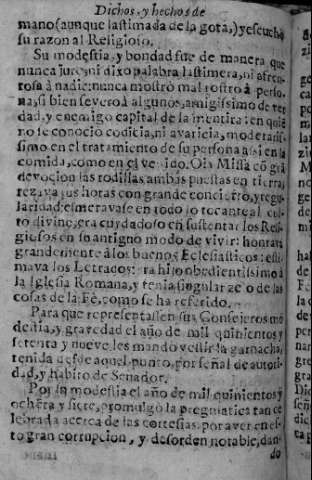 Dichos, y hechos de
mano (aunque lastimada de la gota,) y escuchò
su razon al Religioso.
Su modestia, y bondad fue de manera que
nunca jurò, ni dixo palabra lastimera, ni afren-
tosa à nadie: nunca mostrò mal rostro à perso-
na, si bien severo à algunos, amigissimo de ver
dad, y enemigo capital de la mentira: en quiē
no se conocio codicia, ni avaricia, moderatis-
simo en el tratamiento de su persona assi en la
comida, como en el vestido. Oìa Missa cō grā
devocion las rodillas ambas puestas en tierra,
rezava sus horas con grande concierto, y regu-
laridad: esmeravase en todo lo tocante al cul-
to divino, era cuydadoso en sustentar los Reli-
giosos en su antiguo modo de vivir: honrava
grandemente à los buenos Eclesiasticos: esti-
mava los Letrados: era hijo obedientissimo à
la Iglesia Romana, y tenia singular zelo de las
cosas de la Fè, como se ha referido.
Para que representassen sus Consejeros mo
destia, y gravedad el año de mil quinientos y
setenta y nueve les mandò vestir la garnacha,
tenida desde aquel punto, por señal de autori-
dad, y habito de Senador.
Por su modestia el año de mil quinientos y
ochenta y siete, promulgò la pregmatica tan ce
lebrada acerca de las cortesias, por aver en es-
to gran corrupcion, y desorden notable, dan-
do